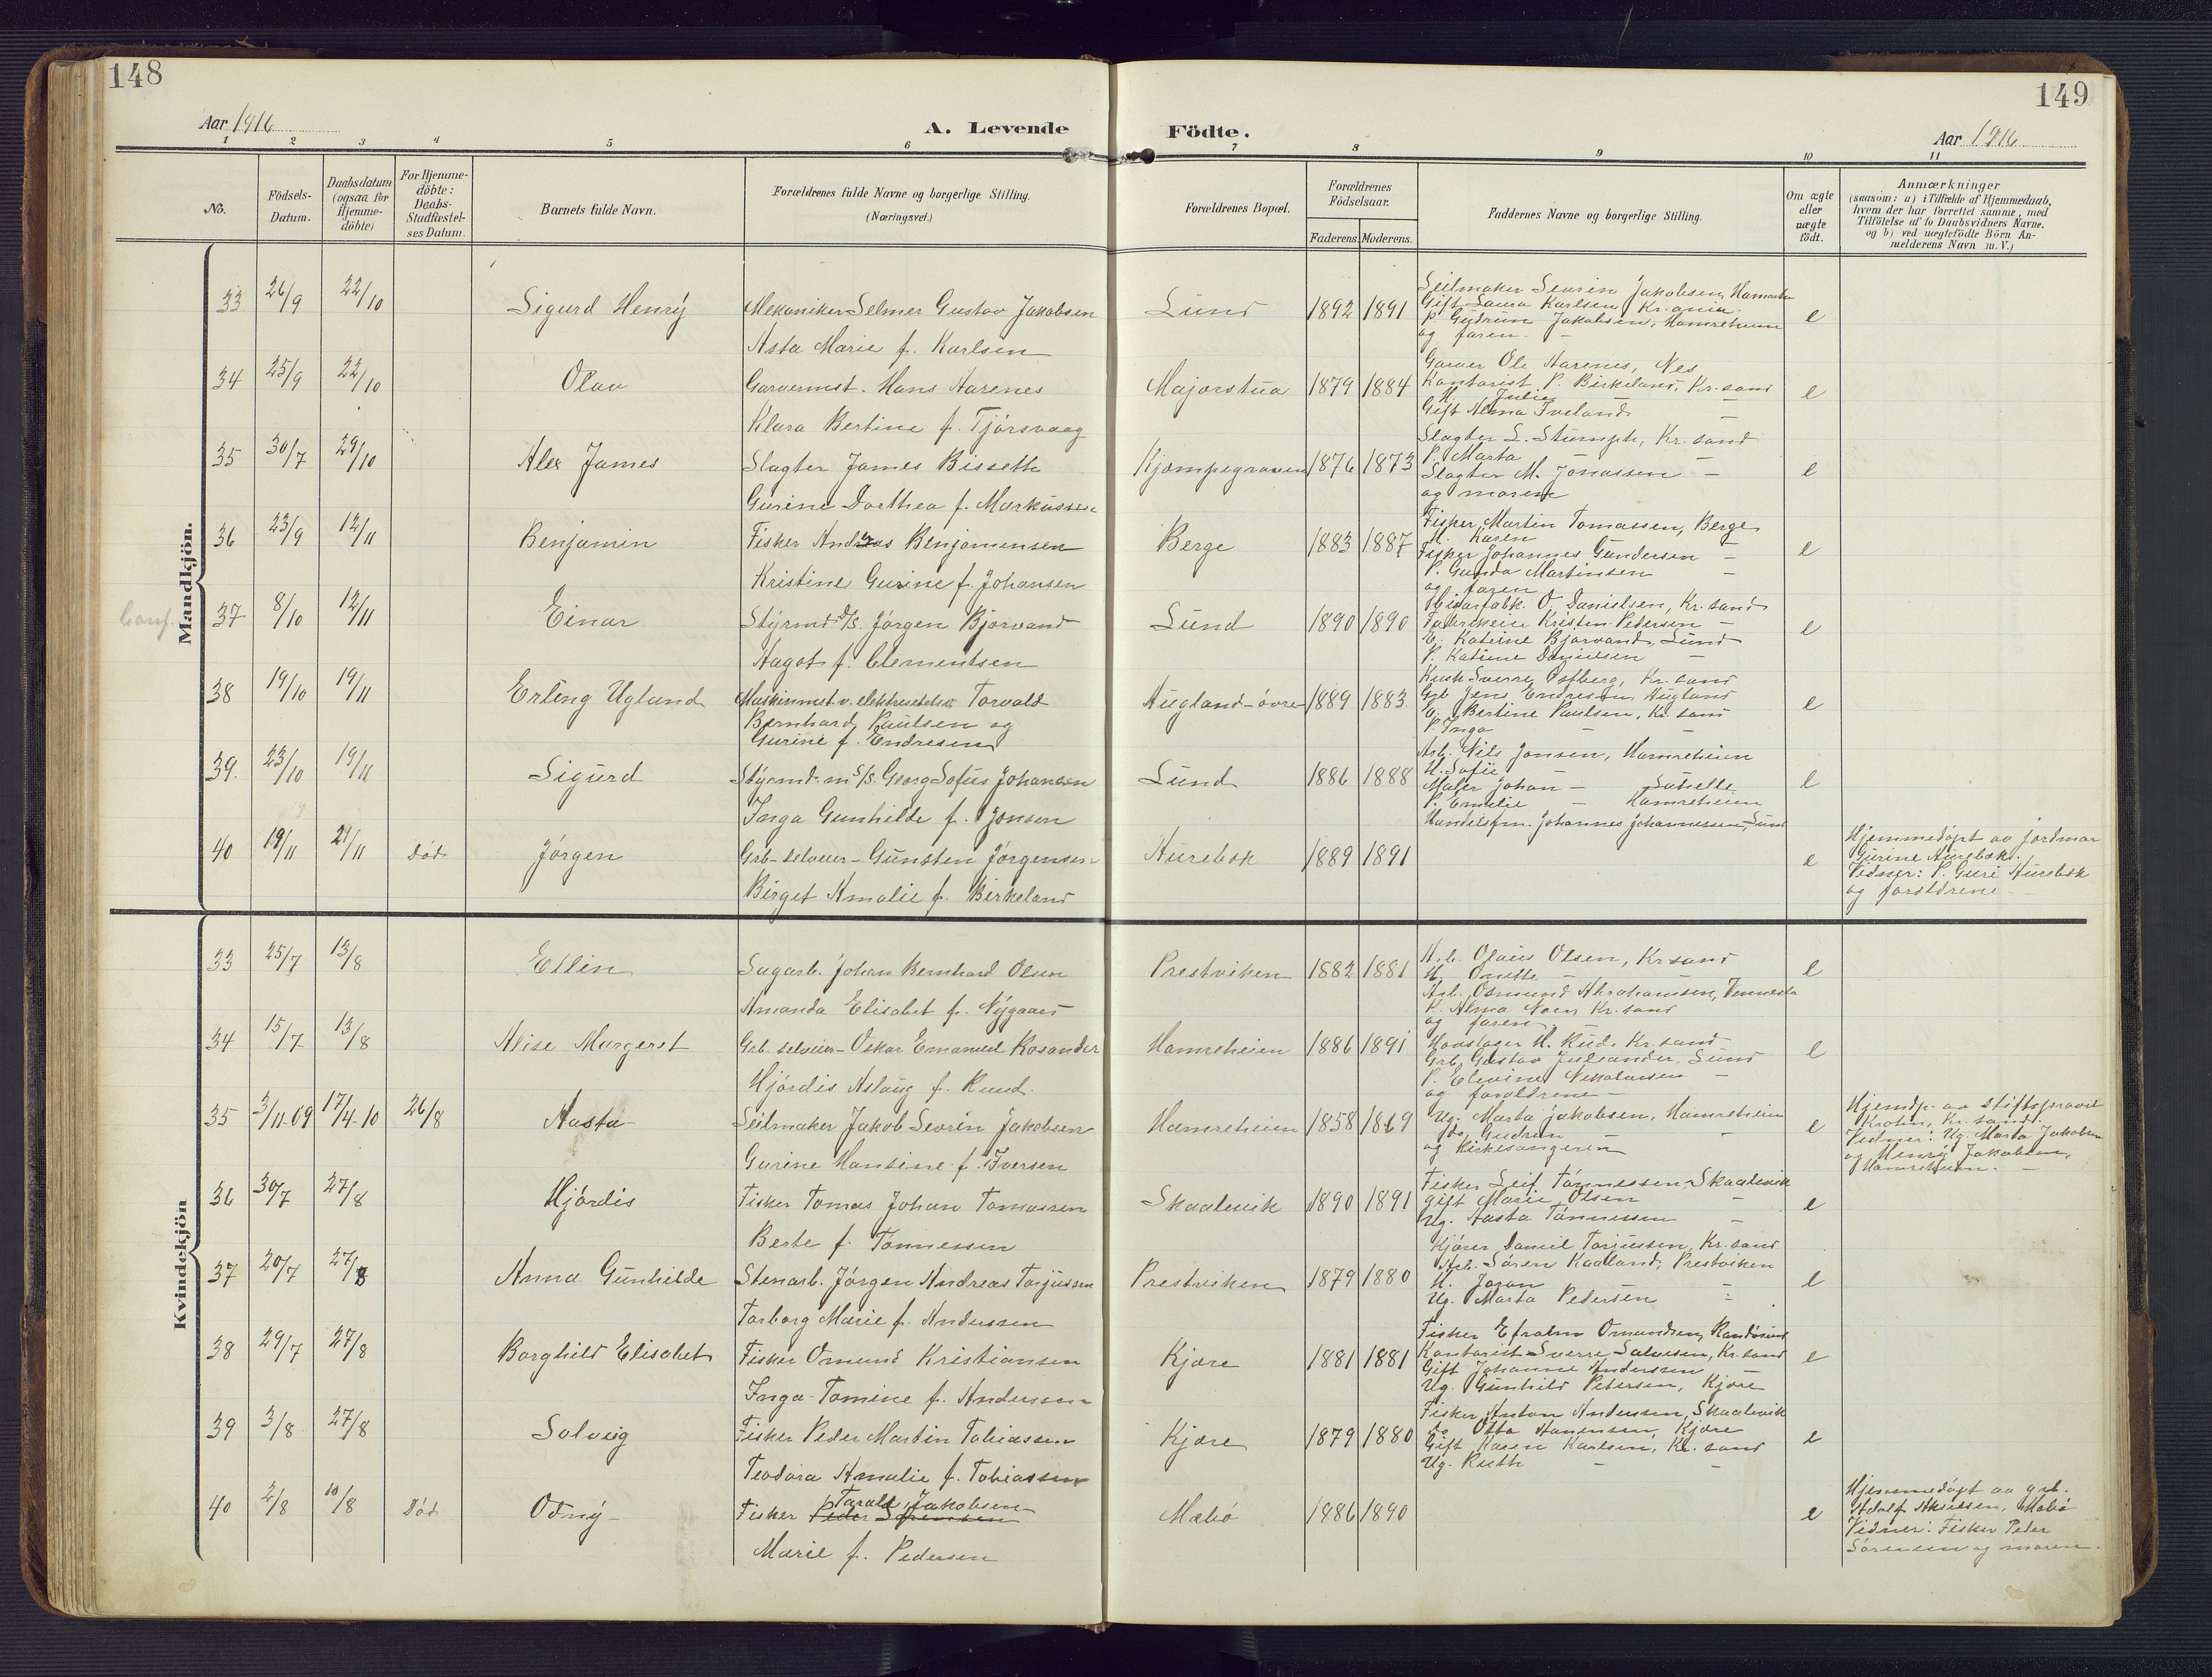 148
149
Aar 1916
A. Levende
Födte.
Aar 1916
1 2 3 4 5 6 7 8 9 10 11
No.
Födsels-Datum.
Daabsdatum (ogsaa for Hjemme-döbte)
For Hjemme-döbte: Daabs-Stadfæstel-ses Datum.
Barnets fulde Navn.
Forældrenes fulde Navne og borgerlige Stilling. (Næringsvei.)
Forældrenes Bopæl.
Forældrenes Födselsaar.
Faderens. Moderens.
Faddernes Navne og borgerlige Stilling.
Om ægte eller uægte födt.
Anmærkninger
(saasom: a) i Tilfælde af Hjemmedaab, hvem der har forrettet samme, med Tilföielse af to Daabsvidners Navne, og b) ved uægtefödte Börn An-melderens Navn m. V.)
Mandkjön.
33 26/9 22/10 Sigurd Henrÿ Mekaniker Selmer Gustav Jakobsen Lund 1892 1891 e
Asta Marie f. Karlsen
Seilmaker Sevrin Jakobsen, Hamreh
Gift Laura Karlsen, Kr.ania.
P. Gudrun Jakobsen, Hamreheien
og faren.
34 25/9 22/10 Olav Garvermst. Hans Aarenes Majorstua 1879 1884 e
Klara Bertine f. Tjörsvaag
Garver Ole Aarenes, Nes
Kontorist P. Birkeland, Kr.sand
H. Julie
Gift Alma Iveland
35 30/7 29/10 Alex James Slagter James Bissett Kjæmpegraven 1876 1873 e
Gurine Dorthea f. Markussen
Slagter L. Stumph, Kr.sand
P. Marta
Slagter M. Jonassen
og moren
36 23/9 12/11 Benjamin Fisker Andreas Benjaminsen Berge 1883 1887 e
Kristine Gurine f. Johansen
Fisker Martin Tomassen, Berge
H. Karen
Fisker Johannes Gundersen
P. Gunda Martinsen
og faren
Conf. 37 8/10 12/11 Einar Stÿrmd D/S. Jörgen Bjorvand Lund 1890 1890 e
Aagot f. Clementsen
O. Danielsen, Kr.sand
Fabrikeier Kristen Pedersen
E. Katrine Bjorvand, Lund
P. Katrine Danielsen
38 19/10 19/11 Erling Ugland Maskinmst. v. Torvald Augland-övre 1889 1883 e
Bernhard Paulsen og
Gurine f. Endresen
Kusk Sverre Östberg, Kr.sand
Grb Jens Endresen, Augland
E. Bertine Paulsen, Kr.sand
P. Inga
39. 23/10 19/11 Sigurd Stÿrmd. m S/S. Georg Sofus Johansen Lund 1886 1888 e
Inga Gunhilde f. Jonsen
Arb. Nils Jonsen, Hamreheien
H. Sofie
Maler Johan
P. Emelie Hamreheien
Handelsfm. Johannes Johannessen, Lund
40 19/11 21/11 Död Jörgen Grb-selveier-Gunsten Jörgensen Aurebæk 1889 1891 e
Birget Amalie f. Birkeland
Hjemmedöpt av jordmor
Gurine Aurebæk.
Vidner: P. Guri Aurebæk
og forældrene
Kvindekjön
33 25/7 13/8 Ellin Sagarb. Johan Bernhard Olsen Prestviken 1882 1881 e
Amanda Elisabet f. Nÿgaard
Arb. Olaus Olsen, Kr.sand
H. Onette
Arb. Osmund Abrahamsen, Vennesla
P. Alma Kr.sand
og faren
34 15/7 13/8 Alise Margeret Grb. selveier-Oskar Emanuel Rosander Hamreheien 1886 1891 e
Hjördis Aslaug f. Ruud.
Hovslager H. Rud, Kr.sand
Grb. Gustav Julsander, Lund
P. Elevine Nekolaisen
og foreldrene
35 3/11-09 17/4-10 26/8 Aasta Seilmaker Jakob Sevrin Jakobsen Hamreheien 1858 1869 e
Gurine Hansine f. Iversen
Ug. Marta Jakobsen, Hamreheien
do Gudrun
og kirkesangeren
Hjemdp. av stiftsprovst
Krohn, Kr.sand.
Vidner: Ug. Marta Jakobsen
og Henrÿ Jakobsen,
Hamreheien.
36 30/7 27/8 Hjördis Fisker Tomas Johan Tomassen Skaalevik 1890 1891 e
Berte f. Tönnessen
Fisker Leif Tönnessen Skaalevik
gift Marie Olsen
Ug. Aasta Tönnessen
37 20/7 27/8 Anna Gunhilde Stenarb. Jörgen Andreas Torjussen Prestviken 1879 1880 e
Torborg Marie f. Andersen
Kjörer Daniel Torjussen, Kr.sand
Arb. Sören Kaaland, Prestviken
H. Joran
Ug. Marta Pedersen
38 29/7 27/8 Borghild Elisabet Fisker Omund Kristiansen Kjære 1881 1881 e
Inga Tomine f. Anderssen
Fisker Efraim Omundsen, Randösund
Kontorist Sverre Salvesen, Kr.sand
Gift Johanne Anderssen
Ug. Gunhild Petersen, Kjære
39 3/8 27/8 Solveig Fisker Peder Martin Tobiassen Kjære 1879 1880 e
Teodora Amalie f. Tobiassen
Fisker Anton Andersen, Skaalevik
do Otto Hansen, Kjære
Gift Karen Karlsen, Kr.sand
Ug. Ruth
40 2/8 10/8 Död Odnÿ Fisker Peder Sörensen Tarald Jakobsen Mæbö 1886 1890 e
Marie f. Pedersen
Hjemmedöpt av grb.
Adolf Akselsen, Mæbö
Vidner: Fisker Peder
Sörensen og moren.